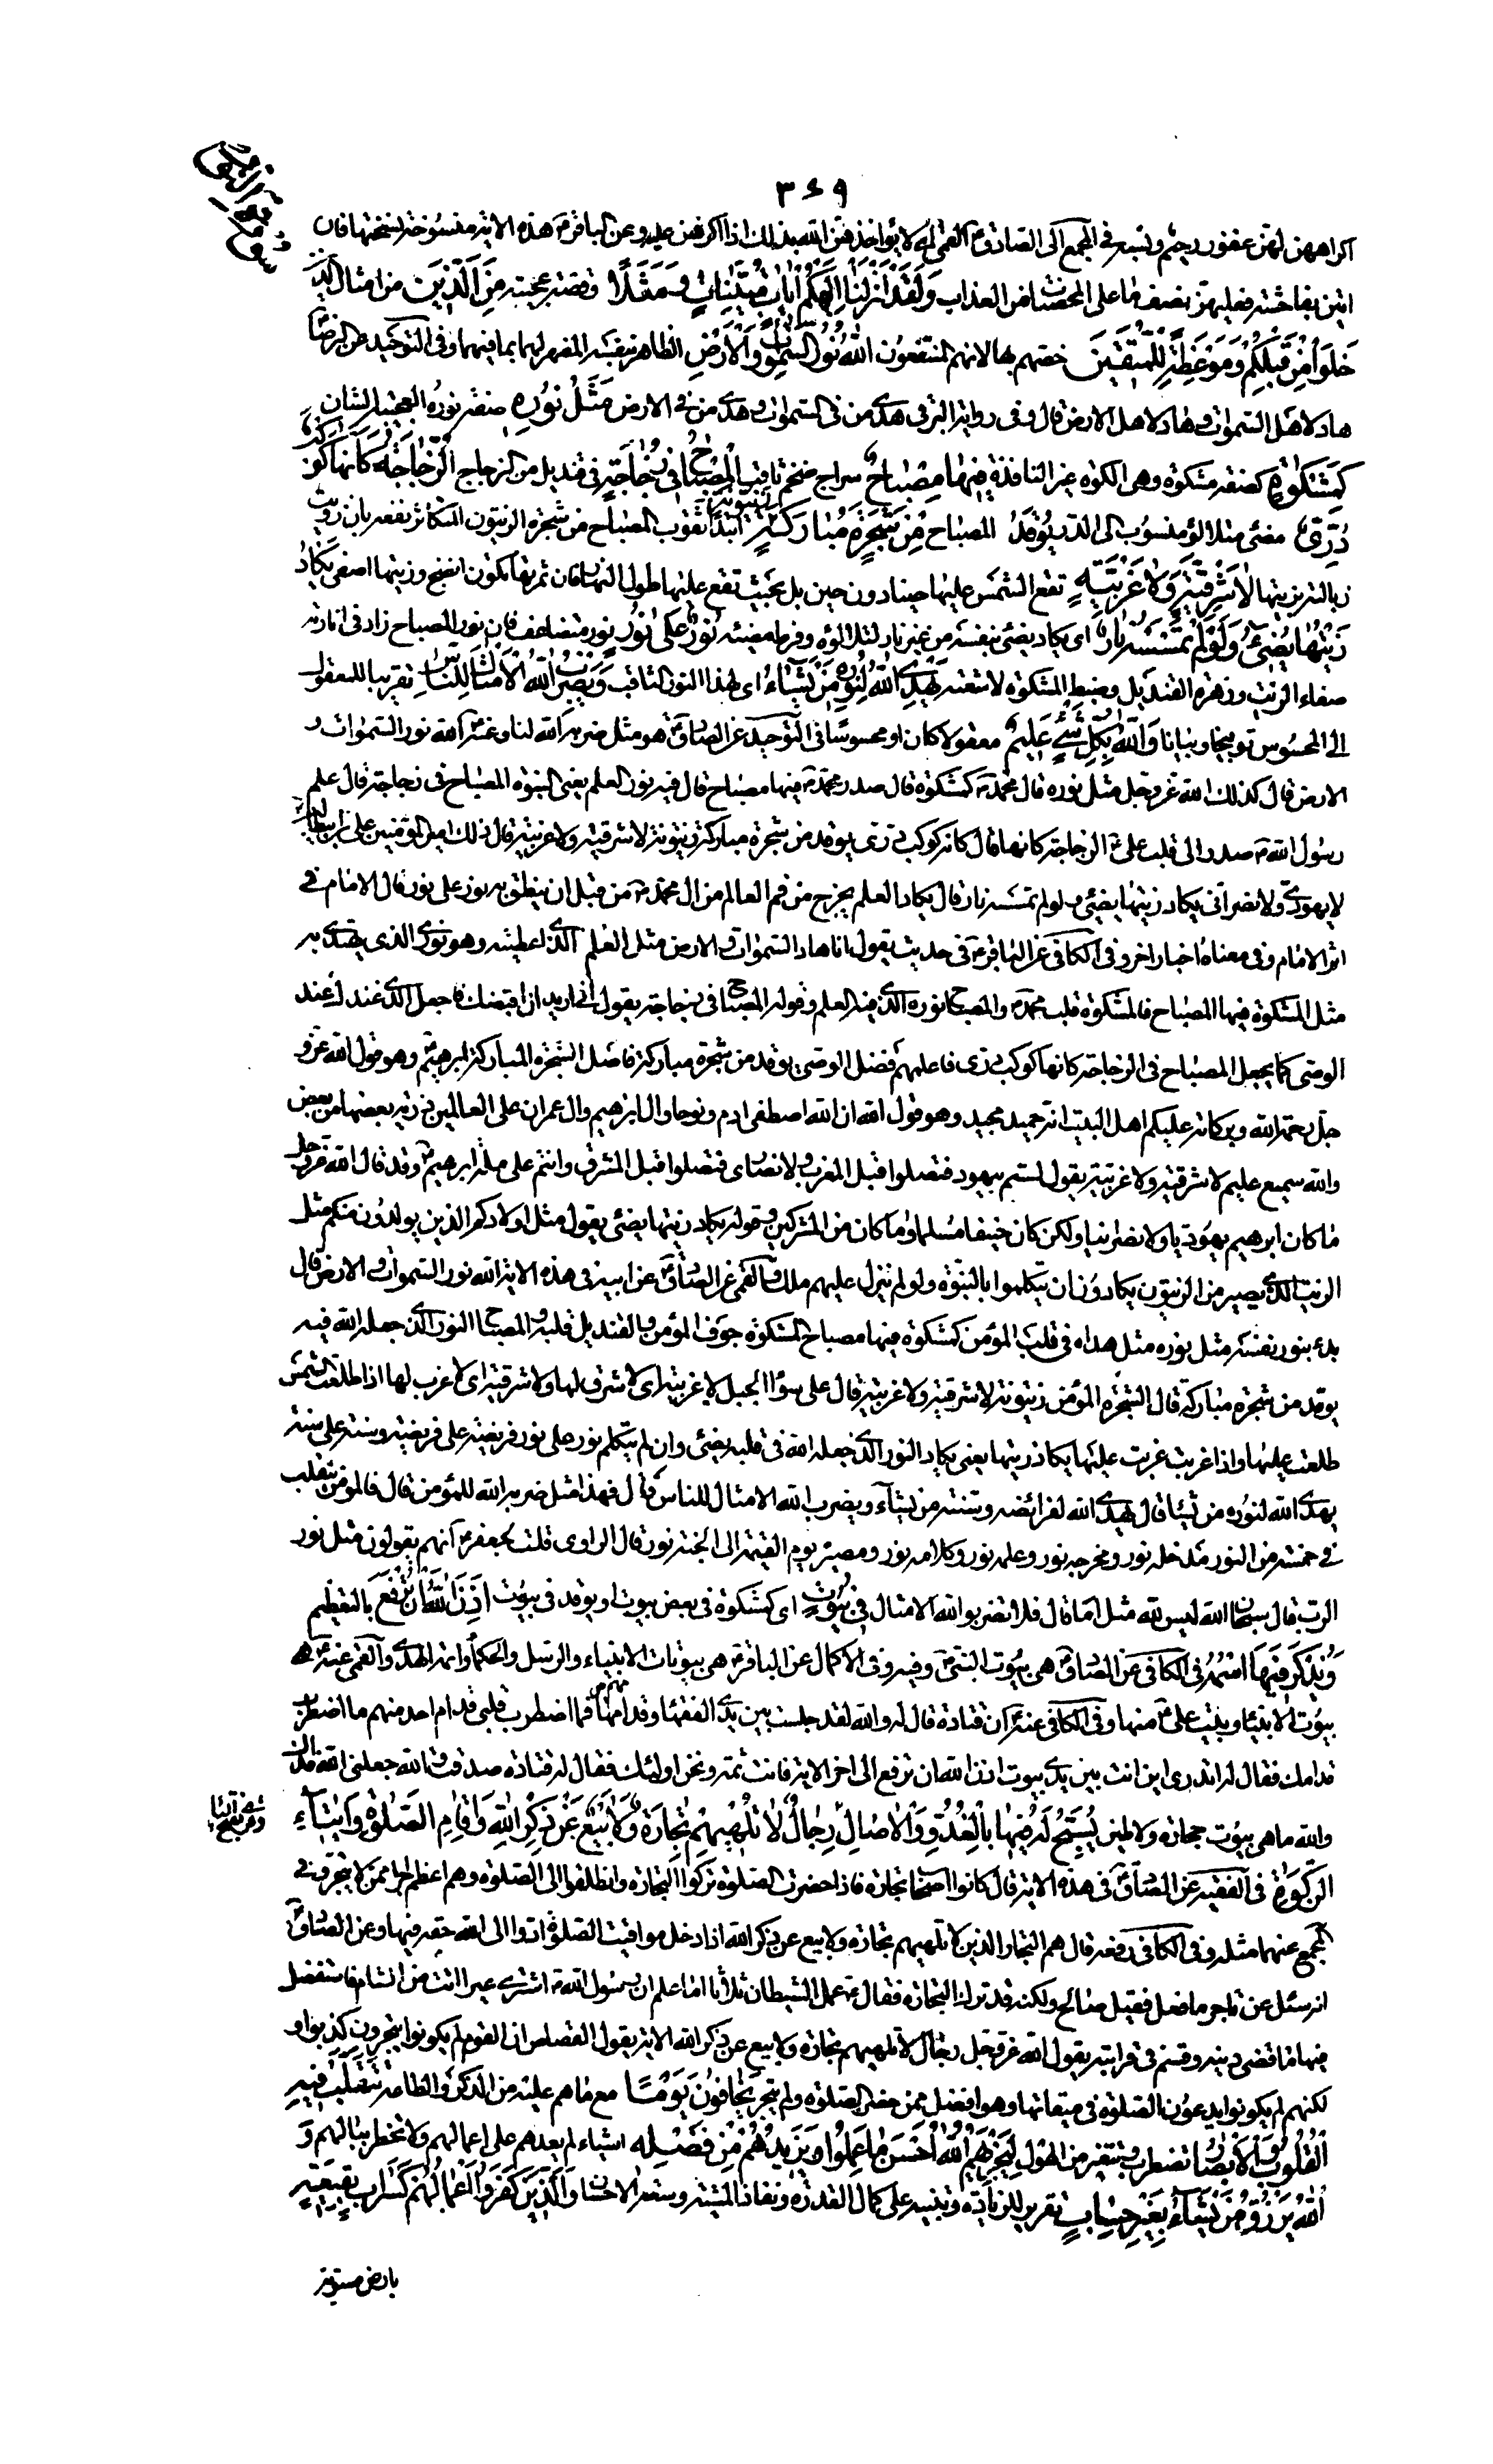 ٣٤٩
اكراههن لهن غفور رحيم وتبع في المجمع الى الصادق ع القمي اي لا يؤاخذهن الله بذلك اذا اكرهن عليه وعن الباقر ع هذه الاية منسوخة نسختها فان
اتين بفاحشة فعليهن نصف ما على المحصنات من العذاب وَلَقَدْ اَنْزَلْنٰا اِلَيْكُمْ اٰيٰاتٍ مُبَيِّنٰاتٍ وَمَثَلًا وقصة عجيبة مِنَ الَّذِينَ من امثال الذين
خَلَوْا مِنْ قَبْلِكُمْ وَمَوْعِظَةً لِلْمُتَّقِينَ خصهم بها لانهم المنتفعون اَللّٰهُ نُورُ السَّمٰوٰاتِ وَالْاَرْضِ الظاهر بنفسه المظهر لهما بما فيهما وفي التوحيد عن الرضا ع
هاد لاهل السموات وهاد لاهل الارض قال وفي رواية البرقي هدى من في السموات وهدى من في الارض مَثَلُ نُورِهِ صفة نوره العجيبة الشان
كَمِشْكٰوةٍ كصفة مشكوة وهي الكوة غير النافذة فِيهٰا مِصْبٰاحٌ سراج ضخم ثاقب اَلْمِصْبٰاحُ فِي زُجٰاجَةٍ في قنديل من الزجاج اَلزُّجٰاجَةُ كَاَنَّهٰا كَوْكَبٌ
دُرِّيٌّ مضئ متلألؤ منسوب الى الدر يُوقَدُ المصباح مِنْ شَجَرَةٍ مُبٰارَكَةٍ زَيْتُونَةٍ ابتداء ثقوب المصباح من شجرة الزيتون المتكاثر نفعه بان رويت
زبالته بزيتها لٰا شَرْقِيَّةٍ وَلٰا غَرْبِيَّةٍ تقع الشمس عليها حينا دون حين بل بحيث تقع عليها طول النهار فان ثمرتها تكون انضج وزيتها اصفى يَكٰادُ
زَيْتُهٰا يُضِيءُ وَلَوْ لَمْ تَمْسَسْهُ نٰارٌ اي يكاد يضئ بنفسه من غير نار لتلألؤه وفرط وميضه نُورٌ عَلىٰ نُورٍ نور متضاعف فان نور المصباح زاد في انارته
صفاء الزيت وزهرة القنديل وضبط المشكوة لاشعته يَهْدِي اللّٰهُ لِنُورِهِ مَنْ يَشٰاءُ اي لهذا النور الثاقب وَيَضْرِبُ اللّٰهُ الْاَمْثٰالَ لِلنّٰاسِ تقريبا للمعقول
الى المحسوس توضيحا وبيانا وَاللّٰهُ بِكُلِّ شَيْءٍ عَلِيمٌ معقولا كان او محسوسا في التوحيد عن الصادق ع هو مثل ضربه الله لنا وعنه ع الله نور السموات و
الارض قال كذلك الله عز وجل مثل نوره قال محمد ص كمشكوة قال صدر محمد ص فيها مصباح قال فيه نور العلم يعني النبوة المصباح في زجاجة قال علم
رسول الله ص صدر الى قلب علي ع الزجاجة كانها قال كانه كوكب دري يوقد من شجرة مباركة زيتونة لا شرقية ولا غربية قال ذلك امير المؤمنين علي بن ابيطالب
لا يهودي ولا نصراني يكاد زيتها يضيء ولو لم تمسسه نار قال يكاد العلم يخرج من فم العالم من ال محمد ص من قبل ان ينطق به نور على نور قال الامام في
اثر الامام وفي معناه اخبار اخر وفي الكافي عن الباقر ع في حديث يقول انا هاد السموات والارض مثل العلم الذي اعطيته وهو نوري الذي يهتدى به
مثل المشكوة فيها المصباح فالمشكوة قلب محمد ص والمصباح نوره الذي فيه العلم وقوله المصباح في زجاجة يقول اني اريد ان اقبضك فاجعل الذي عندك عند
الوصي كما يجعل المصباح في الزجاجة كانها كوكب دري فاعلمهم فضل الوصي يوقد من شجرة مباركة فاصل الشجرة المباركة ابرهيم ع وهو قول الله عز و
جل رحمة الله وبركاته عليكم اهل البيت انه حميد مجيد وهو قول الله ان الله اصطفى ادم ونوحا وال ابرهيم وال عمران على العالمين ذرية بعضها من بعض
والله سميع عليم لا شرقية ولا غربية يقول لستم بيهود فتصلوا قبل المغرب ولا نصارى فتصلوا قبل المشرق وانتم على ملة ابرهيم ع وقد قال الله عز وجل
ما كان ابرهيم يهوديا ولا نصرانيا ولكن كان حنيفا مسلما وما كان من المشركين وقوله يكاد زيتها يضئ يقول مثل اولادكم الذين يولدون منكم مثل
الزيت الذي يصير من الزيتون يكادون ان يتكلموا بالنبوة ولو لم ينزل عليهم ملك والقمي عن الصادق عن ابيه في هذه الاية الله نور السموات والارض قال
بدء بنور نفسه مثل نوره مثل هداه في قلب المؤمن كمشكوة فيها مصباح المشكوة جوف المؤمن والقنديل قلبه والمصباح النور الذي جعله الله فيه
يوقد من شجرة مباركة قال الشجرة المؤمن زيتونة لا شرقية ولا غربية قال على سواء الجبل لا غربية اي لا شرق لها ولا شرقية اي لا غرب لها اذا طلعت الشمس
طلعت عليها واذا غربت غربت عليها يكاد زيتها يعني يكاد النور الذي جعله الله في قلبه يضئ وان لم يتكلم نور على نور فريضة على فريضة وسنة على سنة
يهدي الله لنوره من يشاء قال يهدي الله لفرائضه وسننه من يشاء ويضرب الله الامثال للناس قال فهذا مثل ضربه الله للمؤمن قال فالمؤمن يتقلب
في خمسة من النور مدخله نور ومخرجه نور وعلمه نور وكلامه نور ومصيره يوم القيمة الى الجنة نور قال الراوي قلت لجعفر ع انهم يقولون مثل نور
الرب قال سبحان الله ليس لله مثل اما قال فلا تضربوا لله الامثال فِي بُيُوتٍ اي كمشكوة في بعض بيوت او يوقد في بيوت اَذِنَ اللّٰهُ اَنْ تُرْفَعَ بالتعظيم
وَيُذْكَرَ فِيهَا اسْمُهُ في الكافي عن الصادق ع هي بيوت النبي ص وفيه وفي الاكمال عن الباقر ع هي بيوتات الانبياء والرسل والحكماء وائمة الهدى والقمي عنه ع هي
بيوت الانبياء وبيت علي ع منها وفي الكافي عنه ع ان قتادة قال له والله لقد جلست بين يدي الفقهاء وقدامهم فما اضطرب قلبي قدام احد منهم ما اضطرب
قدامك فقال له اتدري اين انت بين يدي بيوت اذن الله ان ترفع الى اخر الاية فانت ثمة ونحن اولئك فقال له قتادة صدقت والله جعلني الله فداك
والله ما هي بيوت حجارة ولا طين يُسَبِّحُ لَهُ فِيهٰا بِالْغُدُوِّ وَالْاٰصٰالِ رِجٰالٌ لٰا تُلْهِيهِمْ تِجٰارَةٌ وَلٰا بَيْعٌ عَنْ ذِكْرِ اللّٰهِ وَاِقٰامِ الصَّلٰوةِ وَاِيتٰاءِ
الزَّكٰوةِ في الفقيه عن الصادق ع في هذه الاية قال كانوا اصحاب تجارة فاذا حضرت الصلوة تركوا التجارة وانطلقوا الى الصلوة وهم اعظم اجرا ممن لا يتجر وفي
المجمع عنهما مثله وفي الكافي رفعه قال هم التجار الذين لا تلهيهم تجارة ولا بيع عن ذكر الله اذا دخل مواقيت الصلوة ادوا الى الله حقه فيها وعن الصادق ع
انه سئل عن تاجر ما فعل فقيل صالح ولكنه قد ترك التجارة فقال ع عمل الشيطان ثلاثا اما علم ان رسول الله ص اشترى عيرا اتت من الشام فاستفضل
فيها ما قضى دينه وقسم في قرابته يقول الله عز وجل رجال لا تلهيهم تجارة ولا بيع عن ذكر الله الاية يقول القصاص ان القوم لم يكونوا يتجرون كذبوا و
لكنهم لم يكونوا يدعون الصلوة في ميقاتها وهو افضل ممن حضر الصلوة ولم يتجر يَخٰافُونَ يَوْمًا مع ما هم عليه من الذكر والطاعة تَتَقَلَّبُ فِيهِ
الْقُلُوبُ وَالْاَبْصٰارُ تضطرب وتتغير من الهول لِيَجْزِيَهُمُ اللّٰهُ اَحْسَنَ مٰا عَمِلُوا وَيَزِيدَهُمْ مِنْ فَضْلِهِ اشياء لم يعدهم على اعمالهم ولا تخطر ببالهم وَ
اللّٰهُ يَرْزُقُ مَنْ يَشٰاءُ بِغَيْرِ حِسٰابٍ تقرير للزيادة وتنبيه على كمال القدرة ونفاذ المشية وسعة الاحسان وَالَّذِينَ كَفَرُوا اَعْمٰالُهُمْ كَسَرٰابٍ بِقِيعَةٍ
بارض مستوية